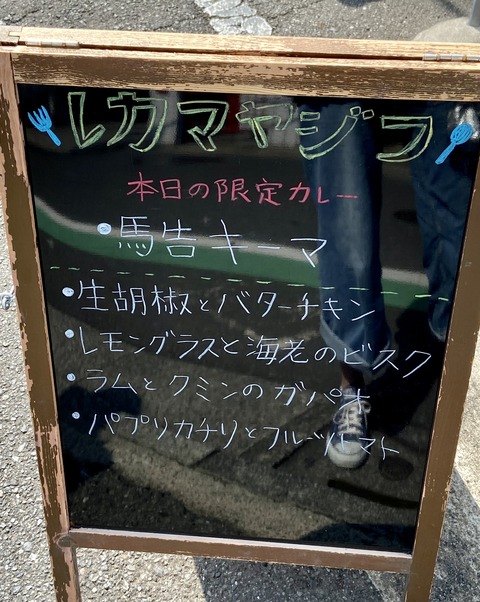 レカマヤジフ
本日の限定カレー
・馬告キーマ
・生胡椒とバターチキン
・レモングラスと海老のビスク
・ラムとクミンのガパオ
・パプリカチリとフルーツトマト